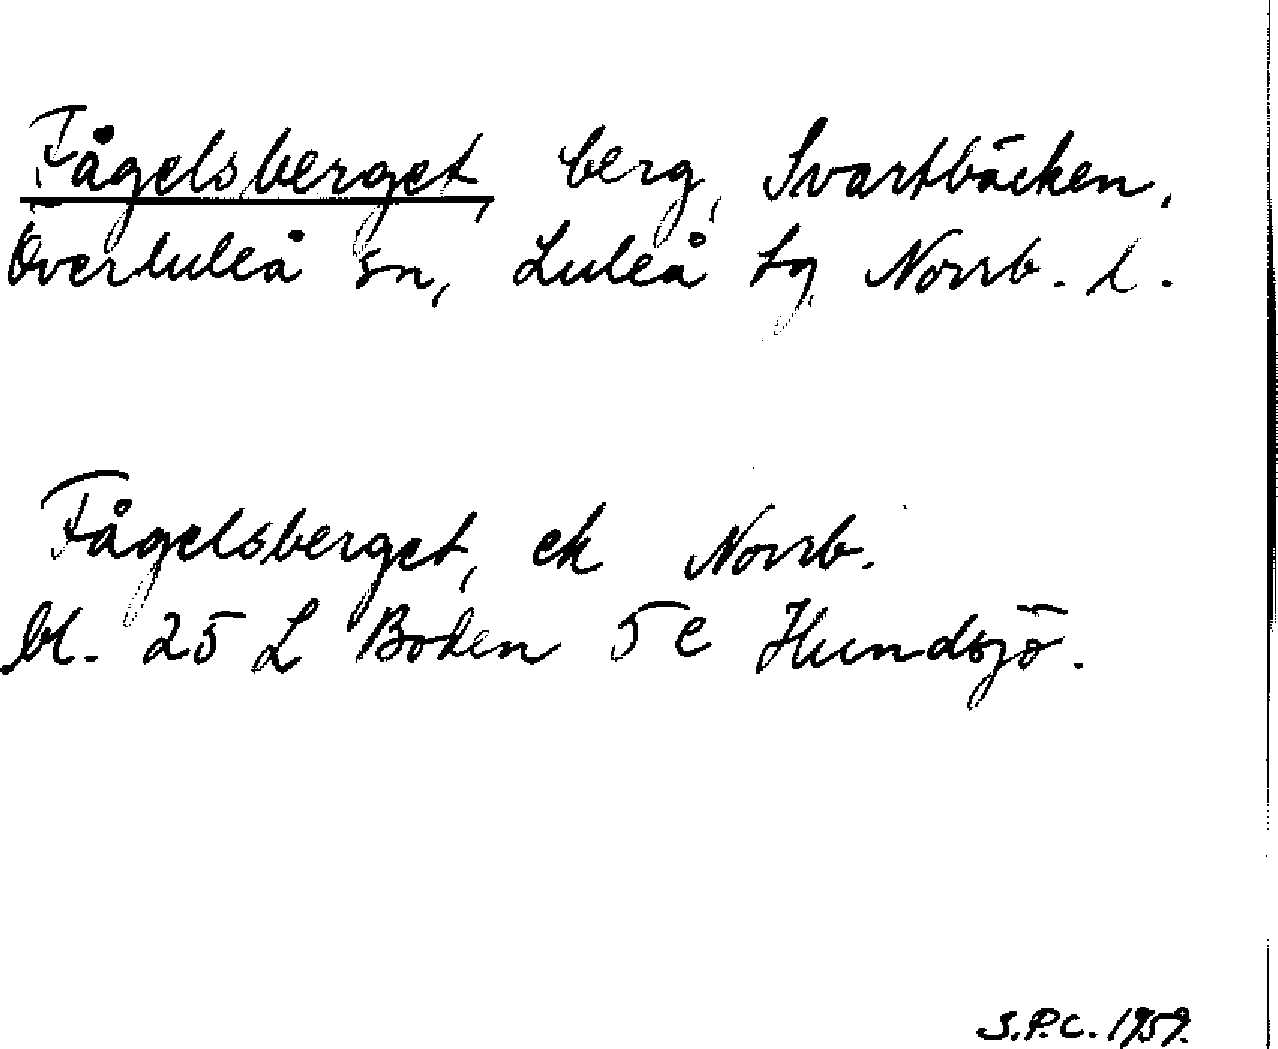 Fågelsberget, berg, Svartbäcken,
Överluleå sn, Luleå tg Norrb. l.
Fågelsberget, ek Norrb.
bl. 25 L Boden 5 c Hundsjö.
S.P.C. 1959.